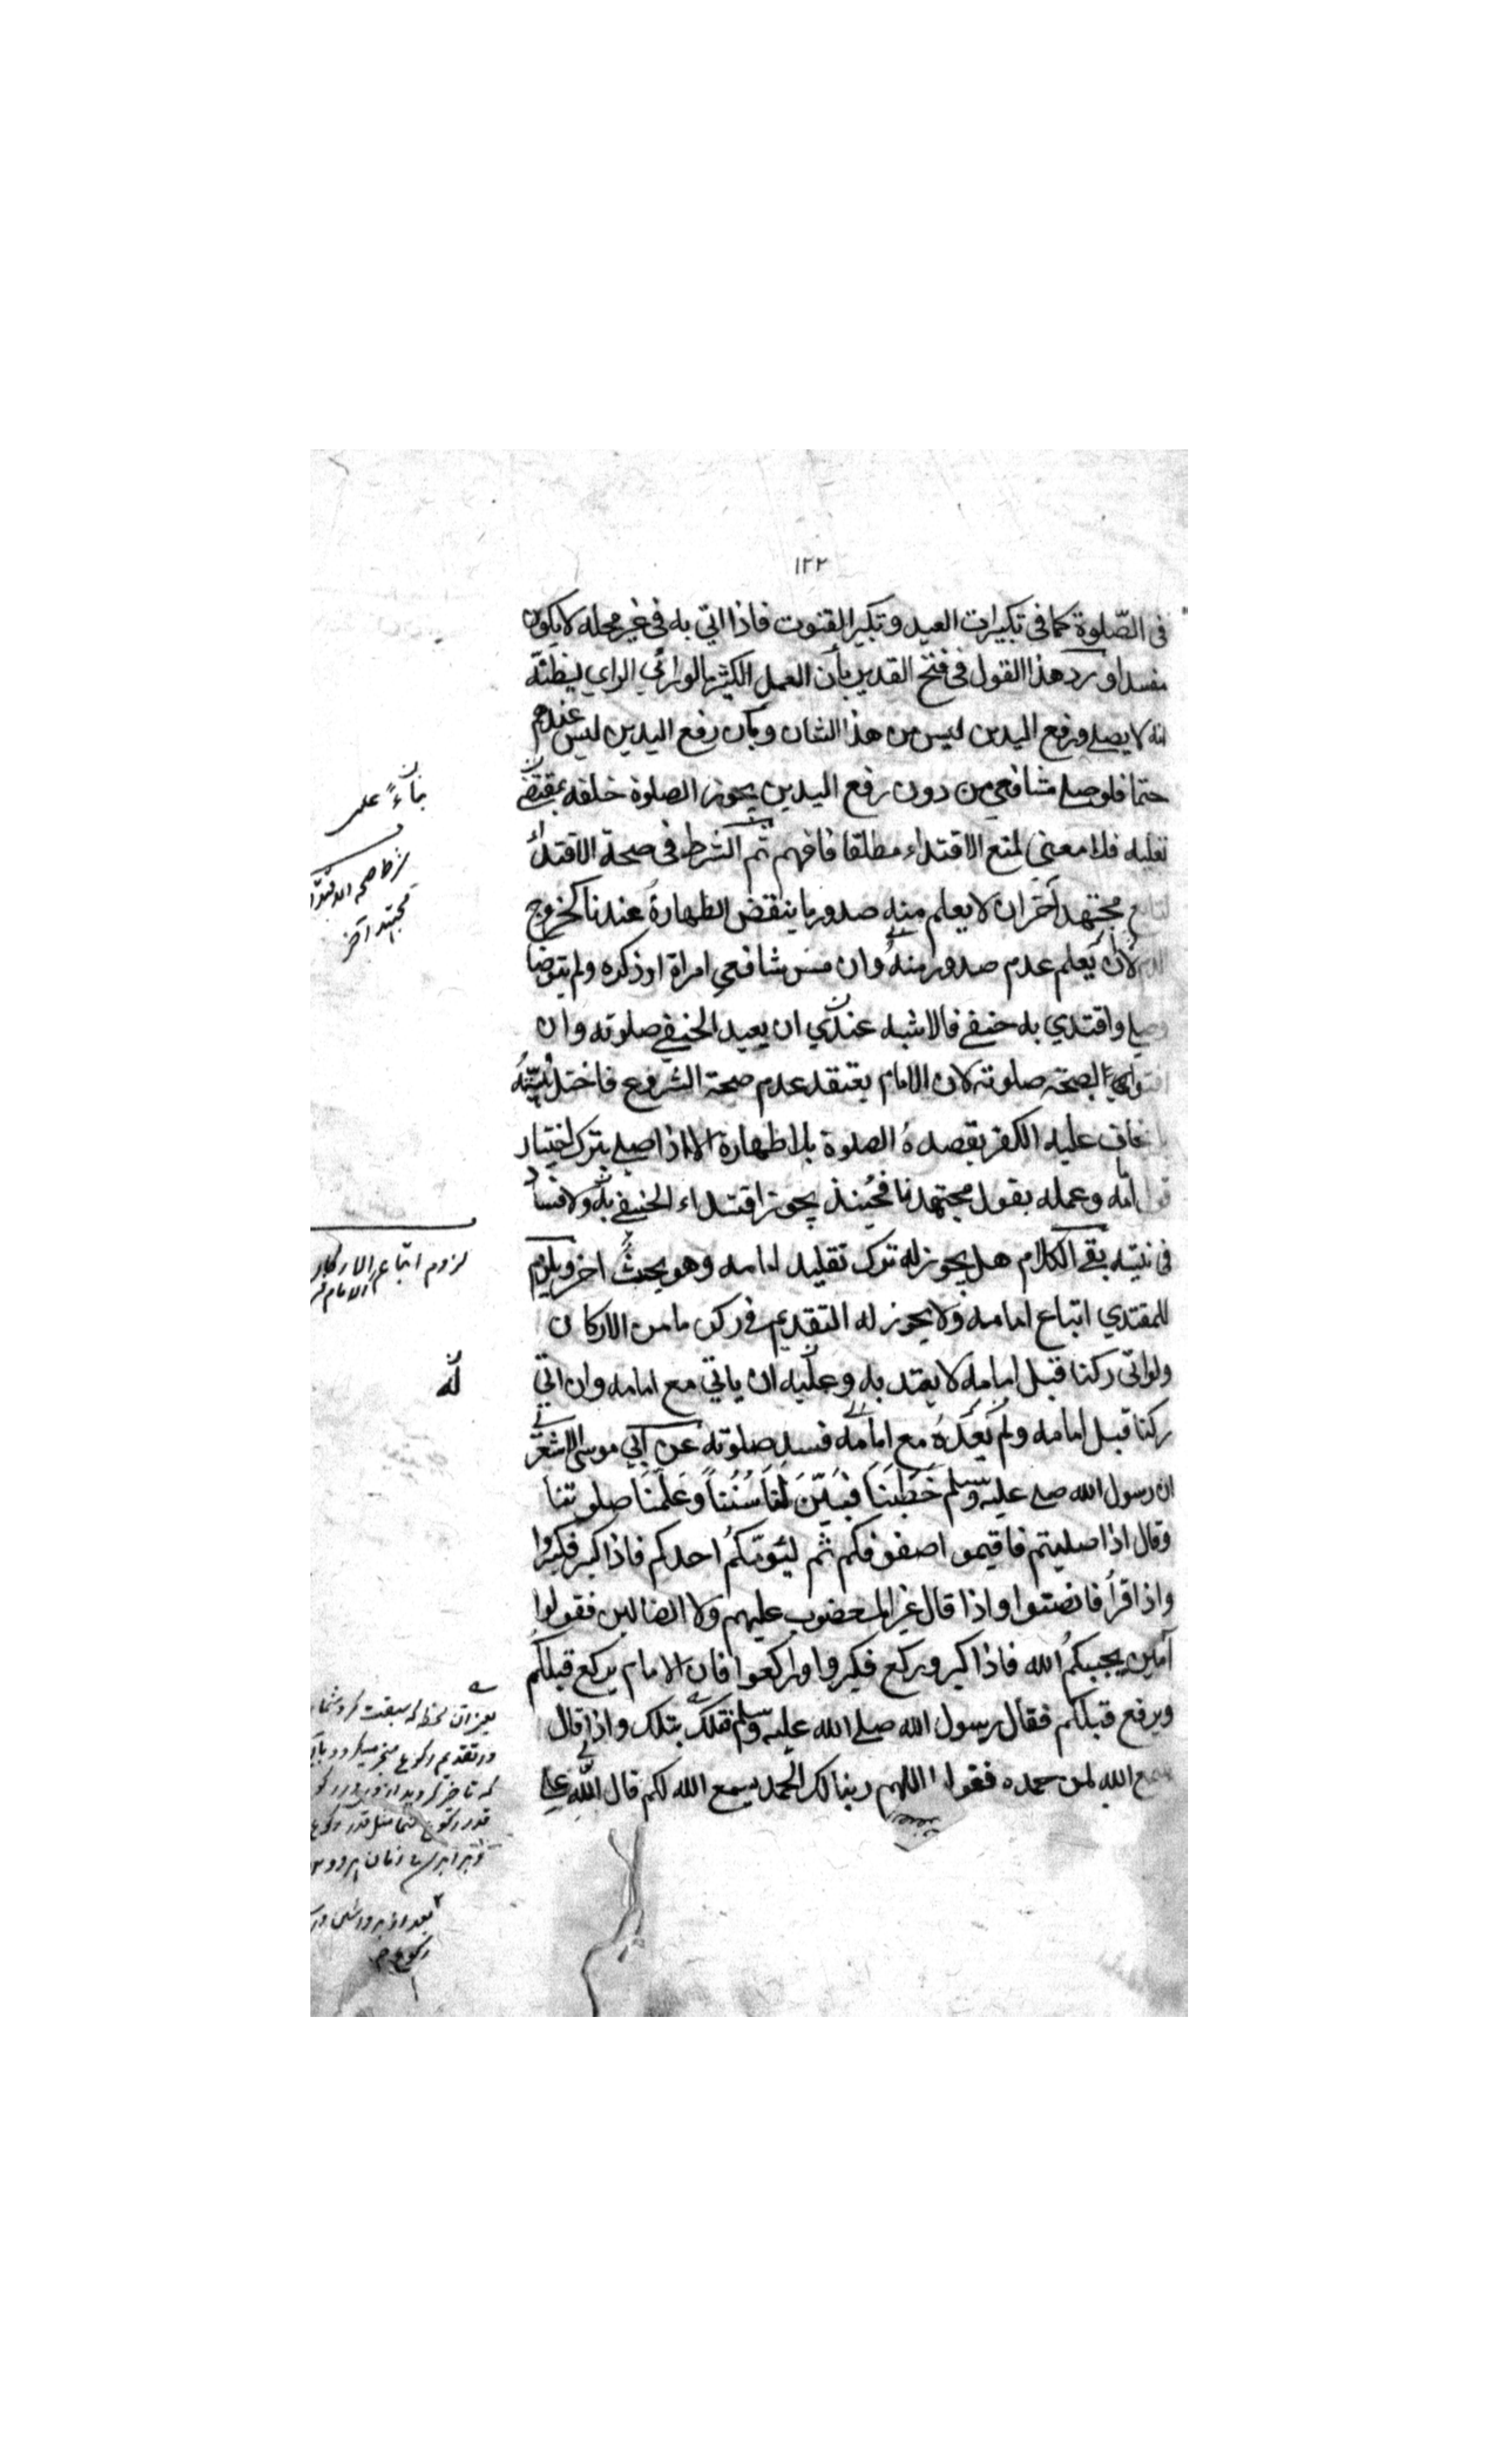 ١٢٢
فى الصّلوة كما فى تكبيرات العيد وتكبير القنوت فاذا اتي به فى غير محله لا يكون
مفسدا ورد هذا القول فى فتح القدير بأن العمل الكثير ما لو رائي الراي ليظنّه
انه لا يصلي ورفع اليدين ليس من هذا الشان وبأن رفع اليدين ليس عندهم
حتما فلو صلى شافعي من دون رفع اليدين يجوز الصلوة خلفه بمقتضى
تقليه فلا معنى لمنع الاقتداء مطلقا فافهم ثم الشرط فى صحة الاقتداء
لتابع مجتهد آخر ان لا يعلم منه صدور ما ينقض الطهارة عندنا كخروج
الدم لا أن يَعلم عدم صدور منه وان مس شافعي امراة او ذكره ولم يتوضا
وصلى واقتدي به حنفي فالاشبه عندي ان يعيد الحنفي صلوته وان
افتوا بصحة صلوته لان الامام يعتقد عدم صحة الشروع فاختل نيّته
يخاف عليه الكفر بقصده الصلوة بلا طهارة الا اذا صلى بترك اختيار
قول امامه وعمله بقول مجتهدنا فحينئذ يجوز اقتداء الحنفي به ولا فساد
فى نيته بقى الكلام هل يجوز له ترك تقليد امامه وهو بحث اخر ويلزم
للمقتدي اتباع امامه ولا يجوز له التقديم فى ركن ما من الاركان
ولو اتى ركنا قبل امامه لا يعتد به وعليه ان ياتي مع امامه وان اتي
ركنا قبل امامه ولم يَعُدهُ مع امامه فسد صلوته عن ابي موسى الاشعرى
ان رسول الله صلى عليه وسلم خَطَبَنَا فَبَيَّنَ لَنَا سُنَنَاً وعَلَّمَنَا صلوتنا
وقال اذا صليتم فاقيموا صفوفكم ثم ليؤمّكم احدكم فاذا كبر فكبروا
واذا قرأ فانصتوا واذا قال غير المغضوب عليهم ولا الضالين فقولوا
آمين يجيبكم الله فاذا كبر وركع فكبروا واركعوا فان الامام يركع قبلكم
ويرفع قبلكم فقال رسول الله صلى الله عليه وسلم فتلك بتلك واذا قال
سمع الله لمن حمده فقولوا اللهم ربنا لك الحمد يسمع الله لكم قال الله على
بناءً على
شرط صحه الاقتداء
مجتهد آخر
لزوم اتباع الاركان
الامام
لَهُ
يعنى ان لحظه كه سبقت كرد شما
در تقديم ركوع منجبر ميكردد بان
كه تاخير كرديد از وى در ركوع
قدر ركوع شما مثل قدر ركوع
بعد از برداشتن
ركوع